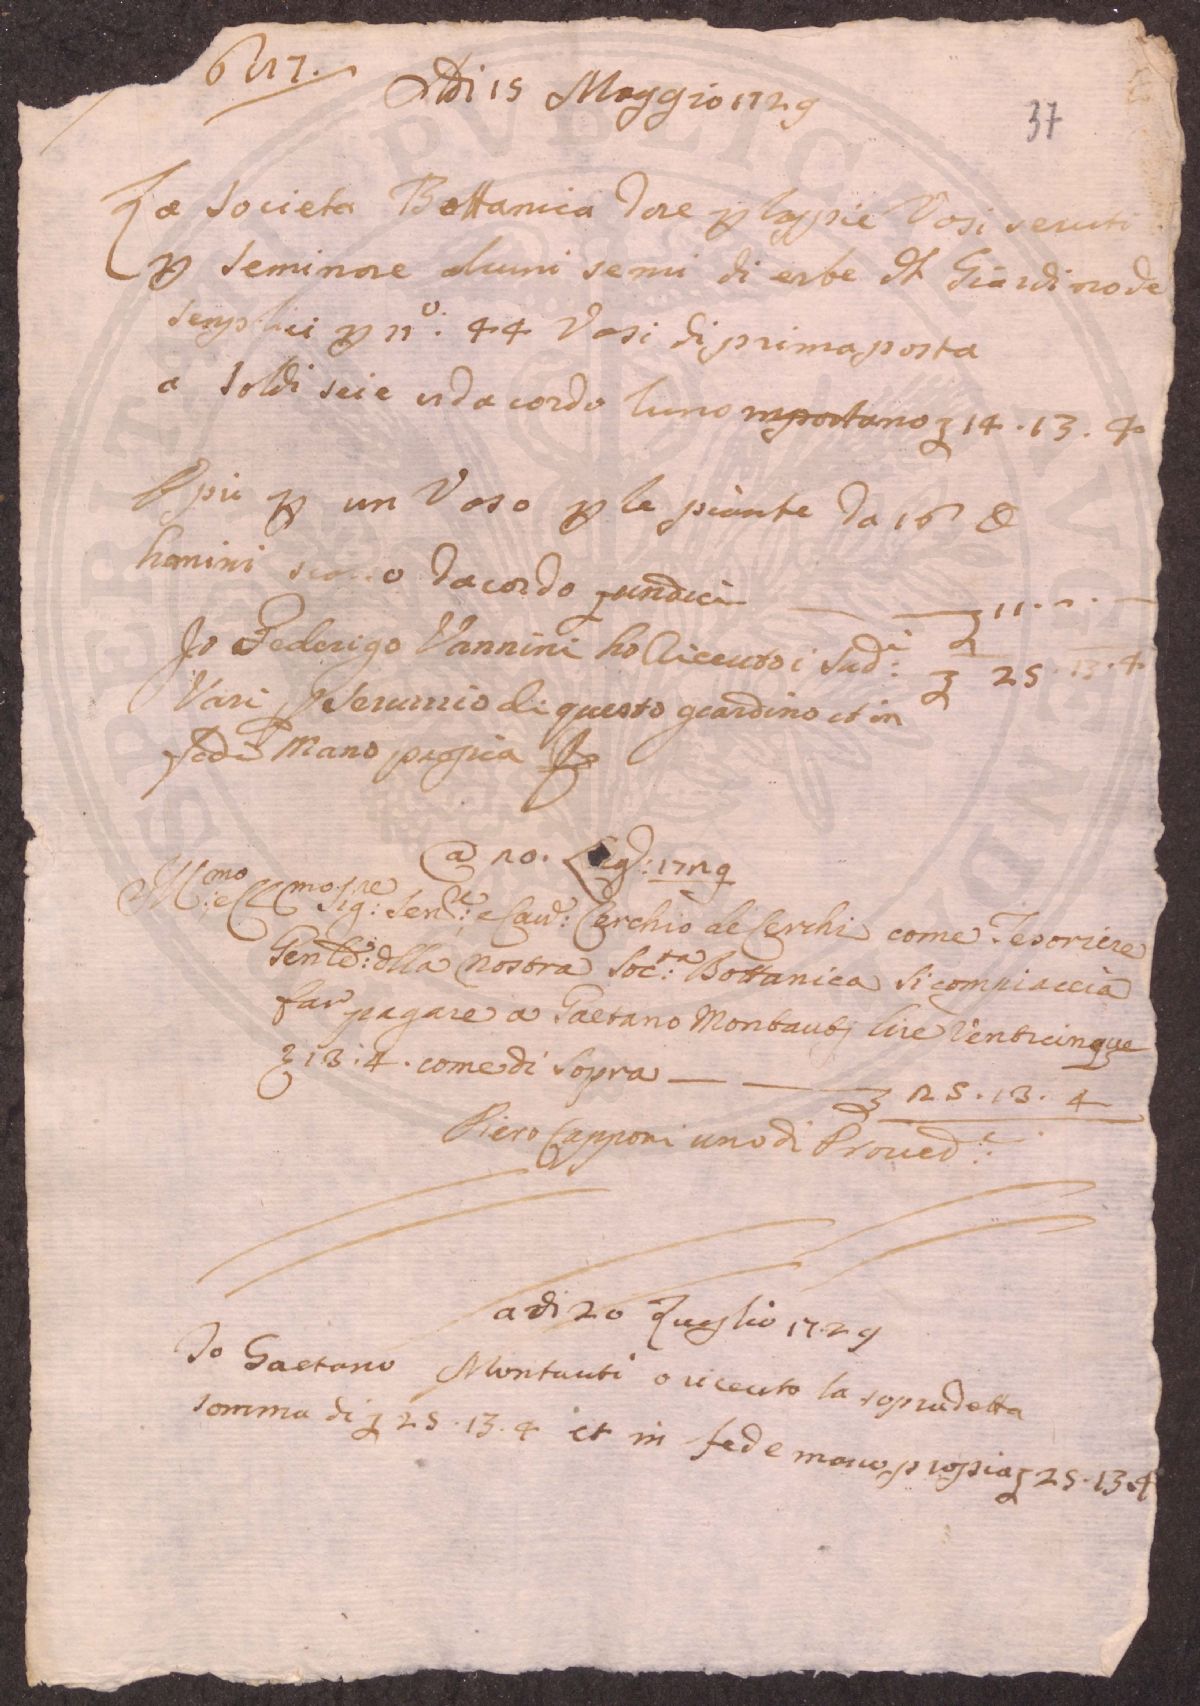 6 117.
Adi 15 Maggio 1729
37
La Societa Bottanica dare p lappie Vasi seruti
p seminare aluni semi di erbe Al Giardino de
senplici p n.o: 44 Vasi di prima posta
a soldi sei e 8 dacordo luno mportano 14.13.4
E piu p un Vaso p le piante da 16
homini dacordo undici 11.-.-
Io Federigo Vannini ho Riceuto i Sud.i: 25.13.4
Vasi p seruizio di questo giardino et in
fede Mano propia
20. Lug.: 1729
Ill:mo e Cl:mo Sig:re Sen:re e Cau:re Cerchio de Cerchi come Tesoriere
Gen:le della nostra Soc:ta Bottanica si compiaccia
far pagare a Gaetano Montauti lire Venticinque
13.4. come di sopra 25.13.4
Piero Capponi uno di Proued:i
adi 20 Luglio 1729
Io Gaetano Montauti o riceuto la sopradetta
somma di 25.13.4 et in fede mano propia 25.13.4
SPERITATEM PVBLICAM